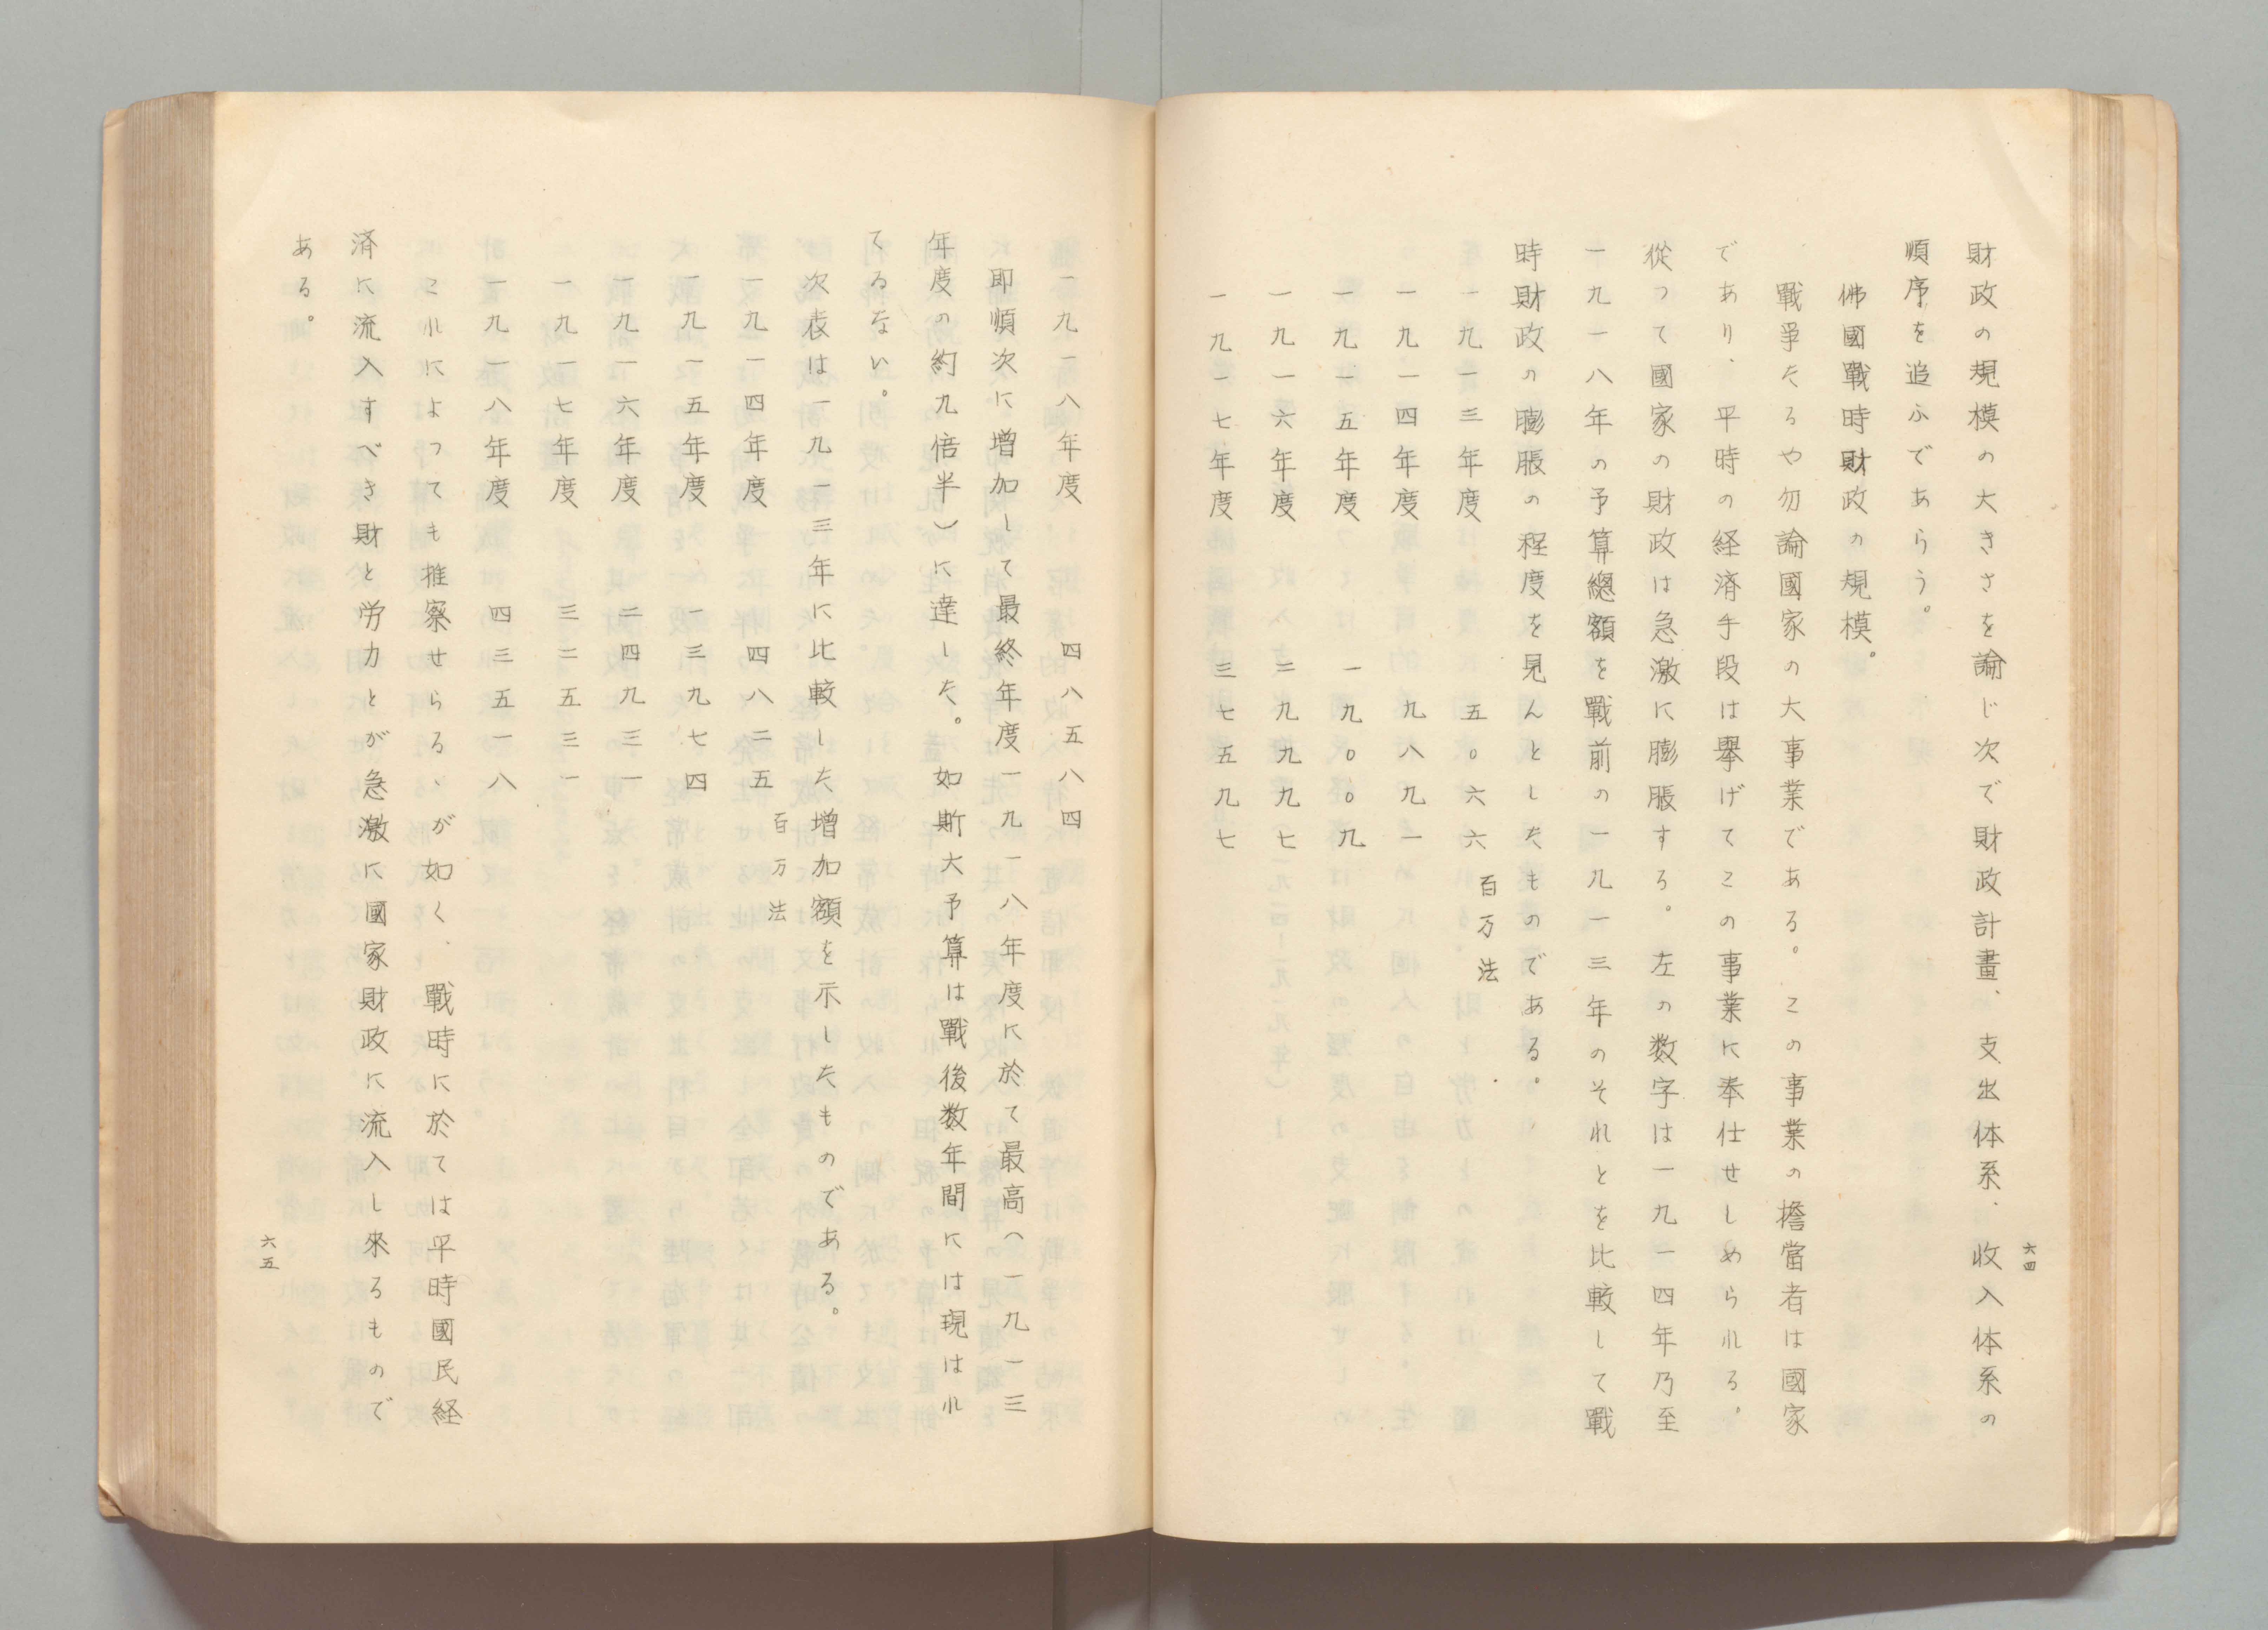 六四
財政の規模の大きさを論じ次で財政計畫、支出体系、收入体系の
順序を追ふであらう。
佛國戰時財政の規模。
戰爭たるや勿論國家の大事業である。この事業の擔當者は國家
であり、平時の経済手段は擧げてこの事業に奉仕せしめられる。
從つて國家の財政は急激に膨脹する。左の数字は一九一四年乃至
一九一八年の予算總額を戰前の一九一三年のそれとを比較して戰
時財政の膨脹の程度を見んとしたものである。
一九一三年度 五〇六六百万法
一九一四年度 九八九一
一九一五年度 一九〇〇九
一九一六年度 二九九九七
一九一七年度 三七五九七
一九一八年度 四八五八四
即順次に增加して最終年度一九一八年度に於て最高(一九一三
年度の約九倍半)に達した。如斯大予算は戰後数年間には現はれ
てるない。
次表は一九一三年に比較した增加額を示したものである。
一九一四年度 四八二五百万法
一九一五年度 一三九七四
一九一六年度 二四九三一
一九一七年度 三二五三一
一九一八年度 四三五一八
これによつても推察せらるゝが如く、戰時に於ては平時國民経
済に流入すべき財と労力とが急激に國家財政に流入し來るもので
ある。
六五